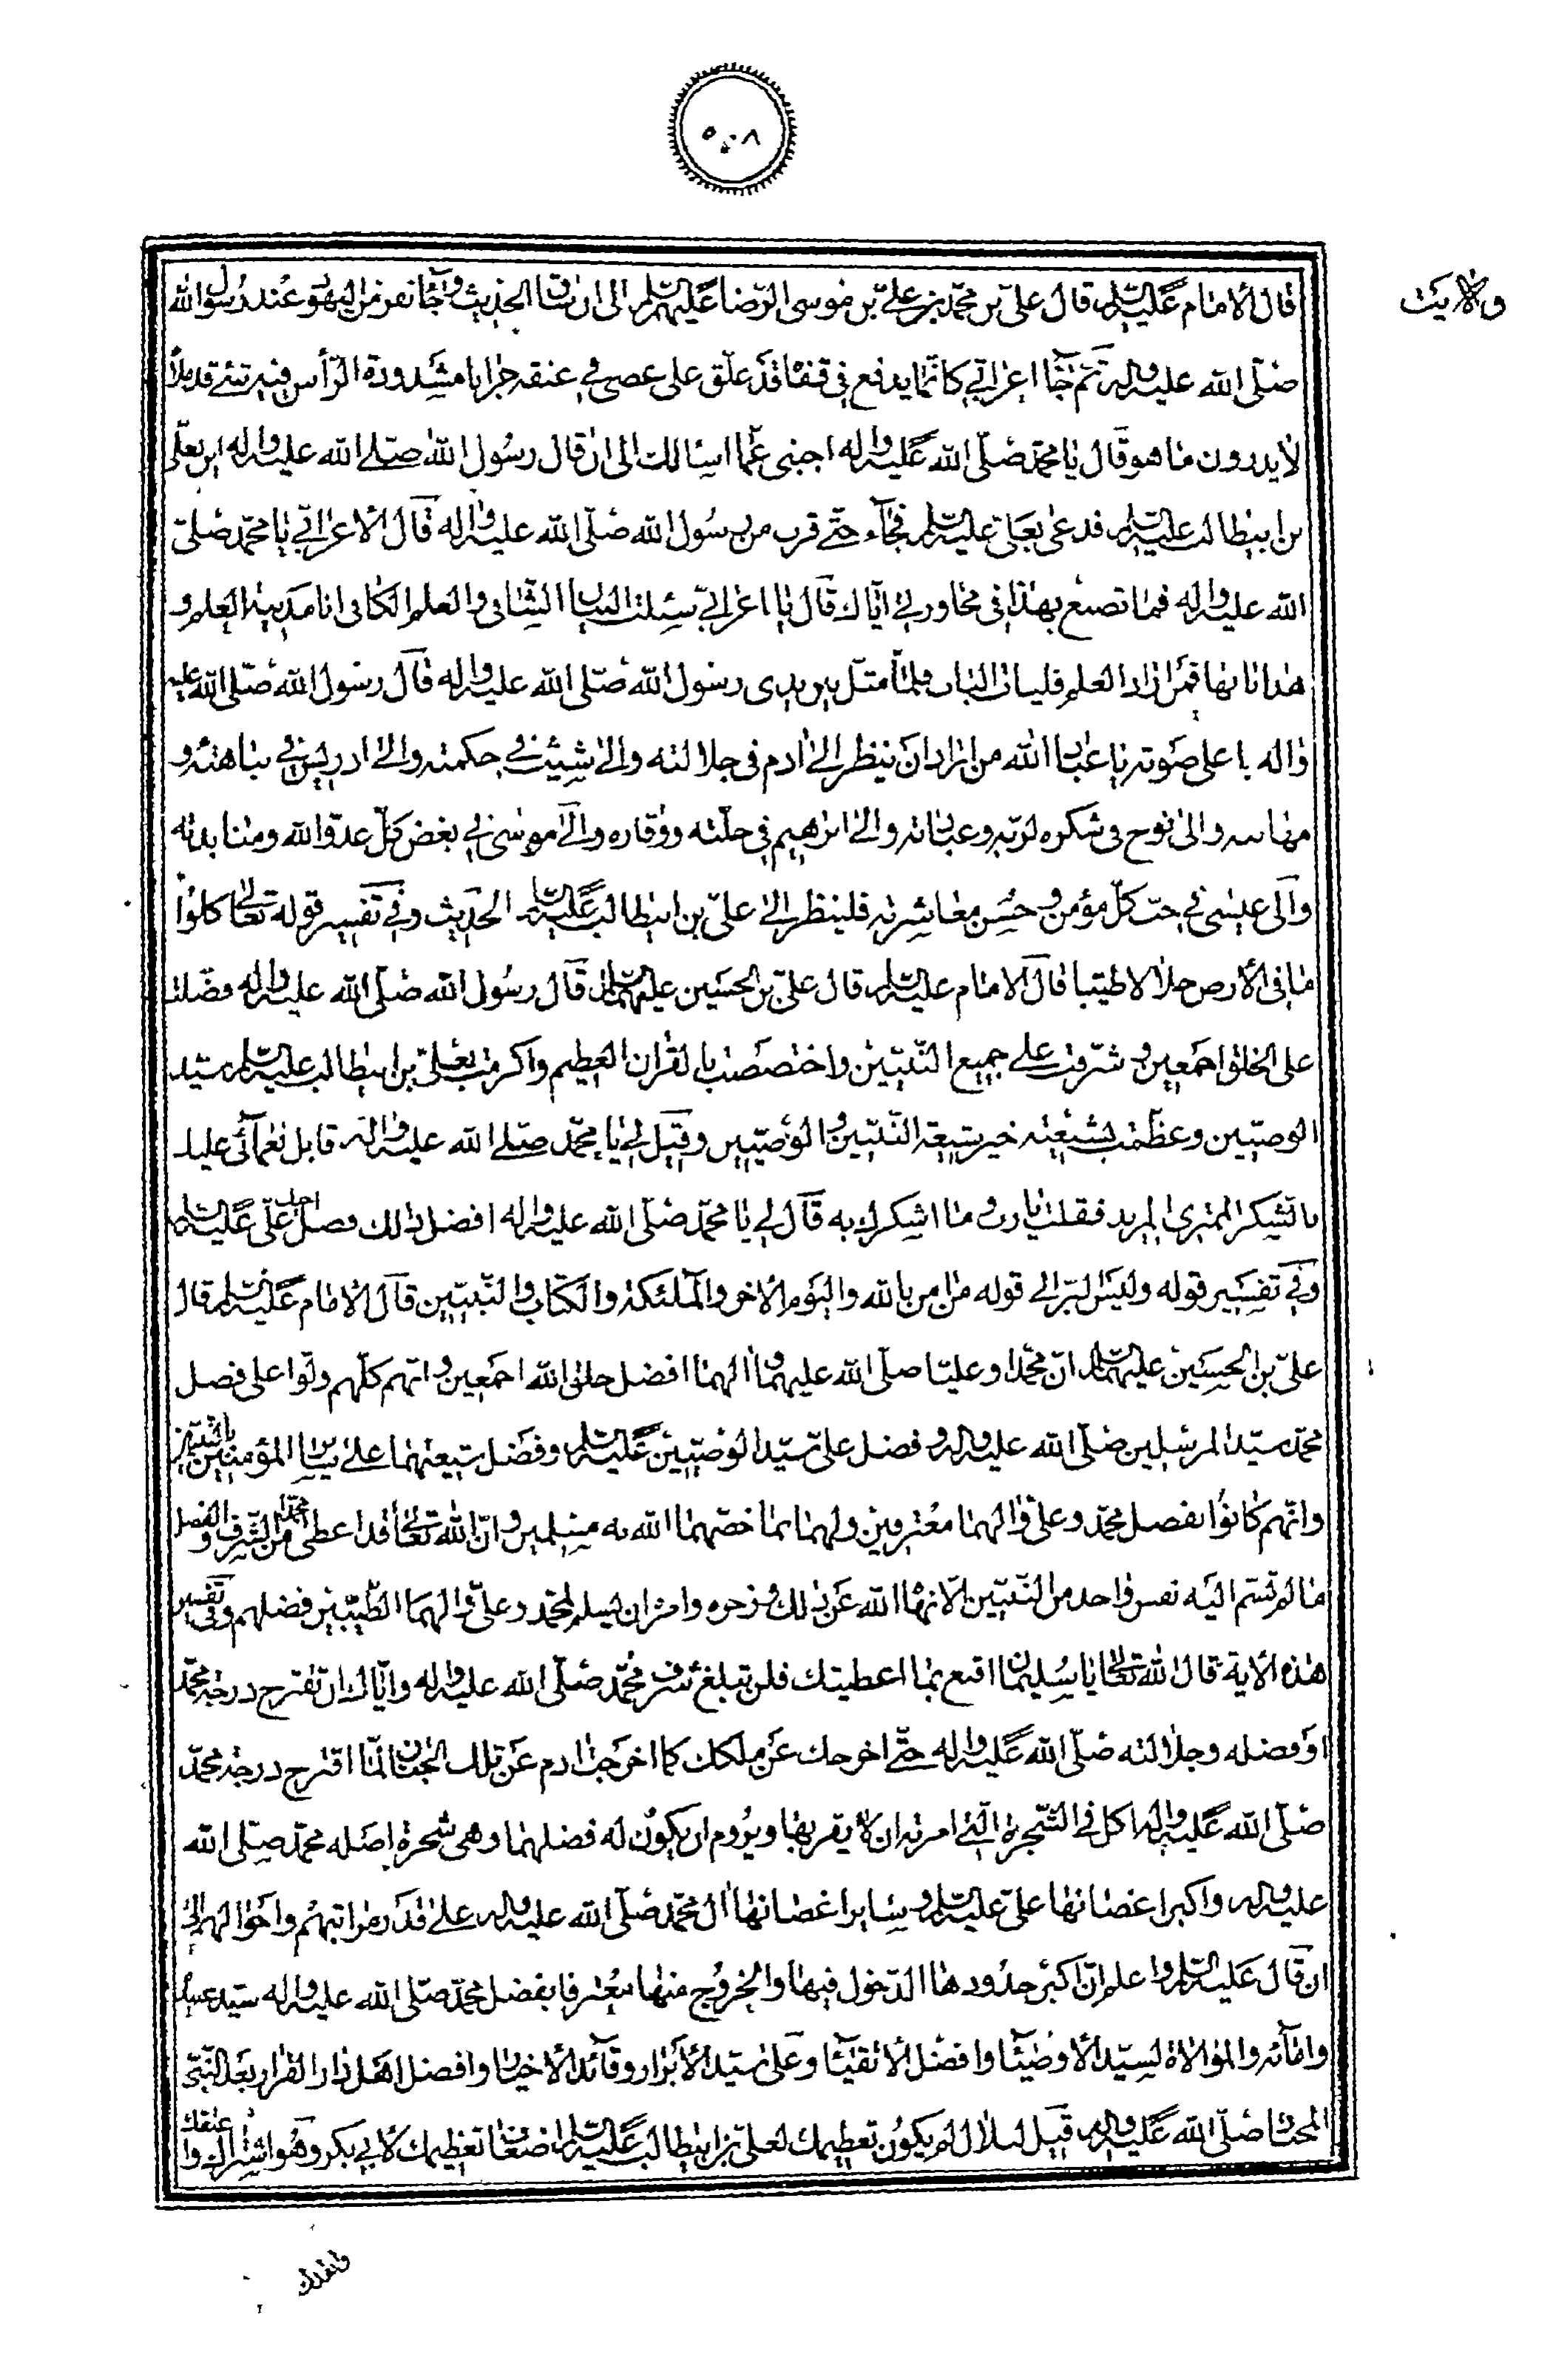 ٥٠٨
ولايت
قال الامام عليه السلم قال علي بن محمد بن علي بن موسى الرضا عليهم السلم الى ان قال الحديث وجاء نفر من اليهود عند رسول الله
صلى الله عليه واله ثم جاء اعرابي كانما يدفع في قفاه قد علق على عصى في عنقه جرابا مشدودة الرأس فيه شئ قد ملأ
لا يدرون ما هو قال يا محمد صلى الله عليه واله اجبني عما اسالك الى ان قال رسول الله صلى الله عليه واله اين علي
بن ابيطالب عليه السلم فدعى بعلي عليه السلم فجاء حتى قرب من رسول الله صلى الله عليه واله قال الاعرابي يا محمد صلى
الله عليه واله فما تصنع بهذا في محاورتي اياك قال يا اعرابي سئلت البيان الشافي والعلم الكافي انا مدينة العلم و
هذا بابها فمن اراد العلم فليات الباب فلما مثل بين يدى رسول الله صلى الله عليه واله قال رسول الله صلى الله عليه
واله باعلى صوته يا عباد الله من اراد ان ينظر الى ادم في جلالته والى شيث في حكمته والى ادريس في نباهته و
مهابته والى نوح في شكره لربه وعبادته والى ابرهيم في خلته ووقاره والى موسى في بغض كل عدو الله ومنابذته
والى عيسى في حب كل مؤمن وحسن معاشرته فلينظر الى علي بن ابيطالب عليه السلم الحديث وفي تفسير قوله تعالى كلوا
ما في الارض حلالا طيبا قال الامام عليه السلم قال علي بن الحسين عليهما السلم قال رسول الله صلى الله عليه واله فضلت
على الخلق اجمعين وشرفت على جميع النبيين واختصصت بالقران العظيم واكرمت بعلي بن ابيطالب عليه السلم سيد
الوصيين وعظمت بشيعته خير شيعة النبيين والوصيين وقيل لي يا محمد صلى الله عليه واله قابل نعمائي عليك
بالشكر الممتري للمزيد فقلت يا رب وما اشكرك به قال لي يا محمد صلى الله عليه واله افضل ذلك فضل اخيك علي عليه السلم
وفي تفسير قوله وليس البر الى قوله من امن بالله واليوم الاخر والملئكة والكتاب والنبيين قال الامام عليه السلم قال
علي بن الحسين عليهما السلم ان محمدا وعليا صلى الله عليهما والهما افضل خلق الله اجمعين وانهم كلهم ولوا على فضل
محمد سيد المرسلين صلى الله عليه واله وفضل علي سيد الوصيين عليه السلم وفضل شيعتهما على سائر المؤمنين بالنبيين
وانهم كانوا بفضل محمد وعلي والهما معترفين ولهما بما خصهما الله به مسلمين وان الله تعالى قد اعطى محمدا من الشرف والفضل
ما لم تسم اليه نفس واحد من النبيين الا نهاه الله عن ذلك وزجره وامره ان يسلم لمحمد وعلي والهما الطيبين فضلهم وفي تفسير
هذه الاية قال الله تعالى يا سليمان اقنع بما اعطيتك فلن تبلغ شرف محمد صلى الله عليه واله واياك ان تقترح درجة محمد
او فضله وجلالته صلى الله عليه واله حتى اخرجك عن ملكك كما اخرجت ادم عن تلك الجنان لما اقترح درجة محمد
صلى الله عليه واله اكل في الشجرة التي امرته ان لا يقربها ويروم ان يكون له فضلهما وهي شجرة اصله محمد صلى الله
عليه واله واكبر اغصانها علي عليه السلم وساير اغصانها ال محمد صلى الله عليه واله على قدر مراتبهم واحوالهم الى
ان قال عليه السلم واعلم ان اكبر حدودها الدخول فيها والخروج منها معترفا بفضل محمد صلى الله عليه واله سيد عبيده
وامائه والموالاة لسيد الاوصياء وافضل الاتقياء وعلي سيد الابرار وقائد الاخيار وافضل اهل دار القرار بعد النبي
المختار صلى الله عليه واله قيل لبلال لم يكون تعظيمك لعلي بن ابيطالب عليه السلم اضعاف تعظيمك لابي بكر وهو اشتراك واعتقك